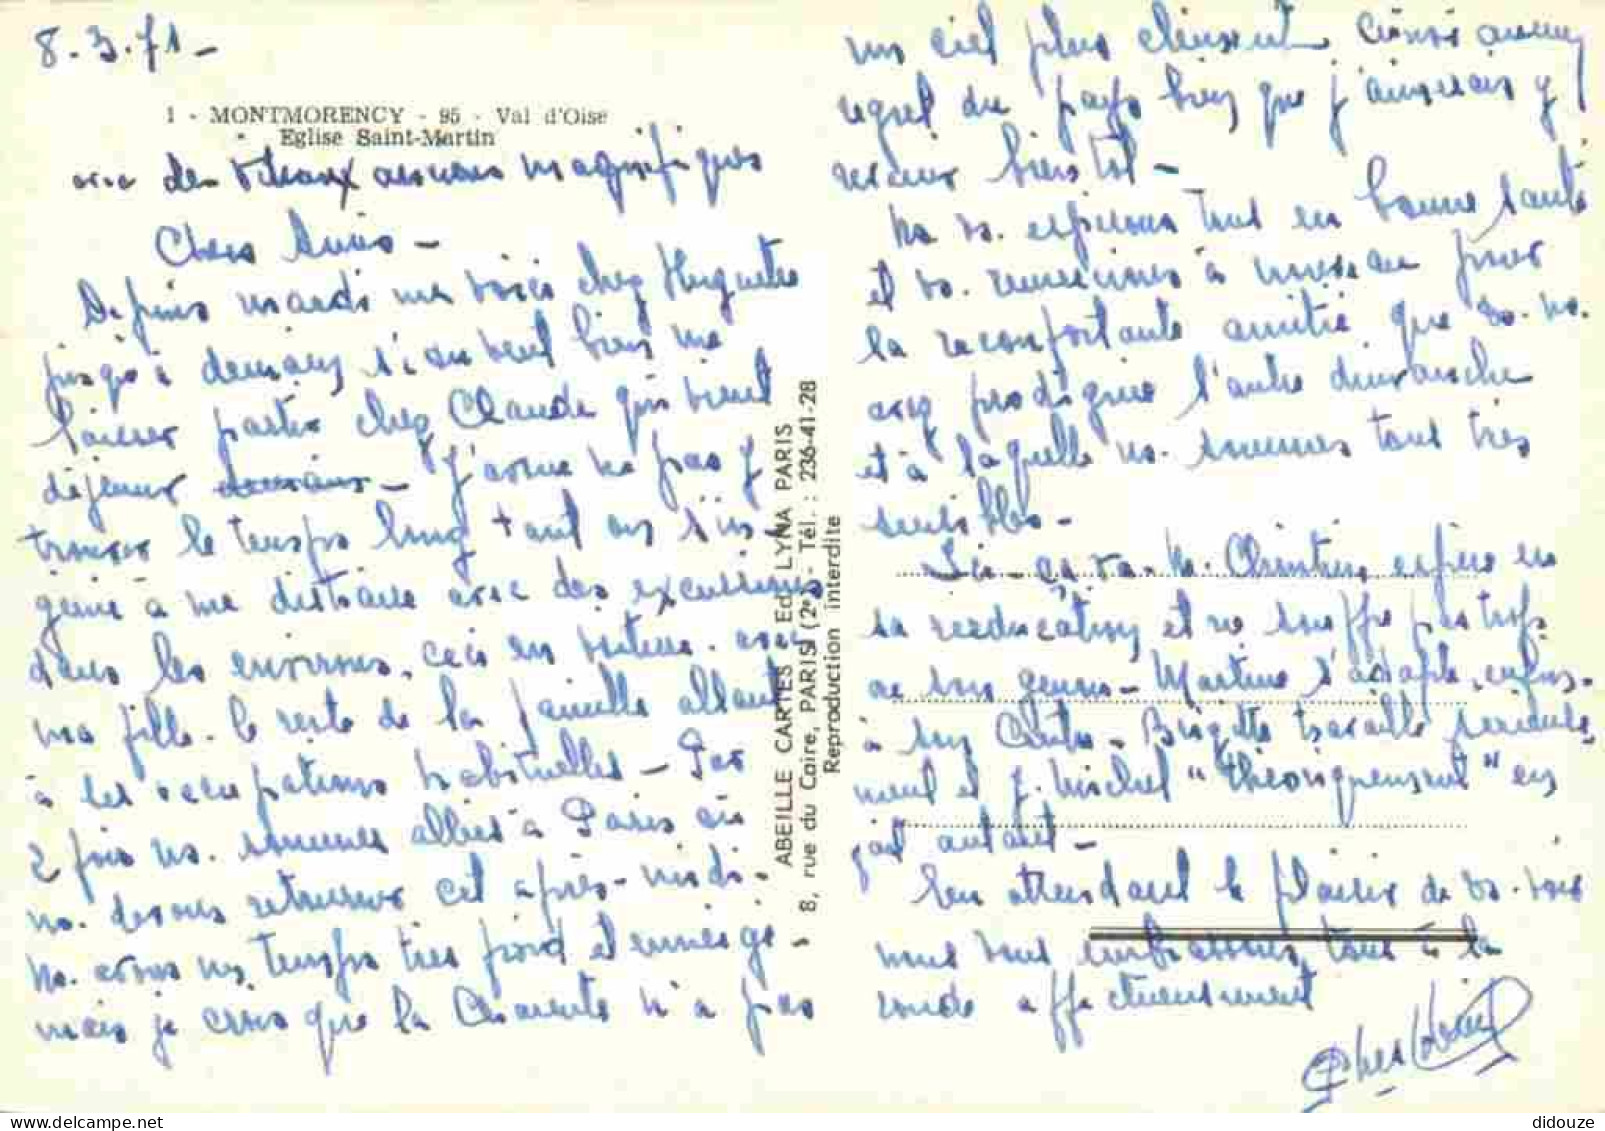 8.3.71 -
1 - MONTMORENCY - 95 - Val d'Oise
Eglise Saint-Martin
avec des vitraux anciens magnifiques
Chers Amis -
Depuis mardi me voici chez Huguette
jusqu'à demain, si on veut bien me
laisser partir chez Claude qui vient
déjeuner - J'avoue ne pas y
trouver le temps long tant on s'in
génie à me distraire avec des excursions
dans les environs, ceci en voiture. avec
ma fille. le reste de la famille allant
à ses occupations habituelles - Par
2 fois ns. sommes allées à Paris où
ns. devons retourner cet après-midi.
ns. avons un temps très froid et ennei gé -
mais je crois que la Charente n'a pas
un ciel plus clément, ainsi aucun
regret du pays bien que j'aimerais y
revenir bientôt -
Ns vs. espérons tous en bonne santé
et vs. remercions à nouveau pour
la réconfortante amitié que vs. ns.
avez prodiguée l'autre dimanche
et à laquelle ns. sommes tous très
sensibles -
Ici - ça va. Christine espère en
sa rééducation et ne souffre pas trop
de son genou - Martine s'adapte enfin
à son Centre - Brigitte travaille sérieuse
ment et J. Michel "théoriquement" en
fait autant -
En attendant le plaisir de vs. voir
nous vous embrassons tous à la
ronde affectueusement
ABEILLE CARTES - Ed. LYNA PARIS
8, rue du Caire, PARIS (2e) - Tél. : 236-41-28
Reproduction interdite